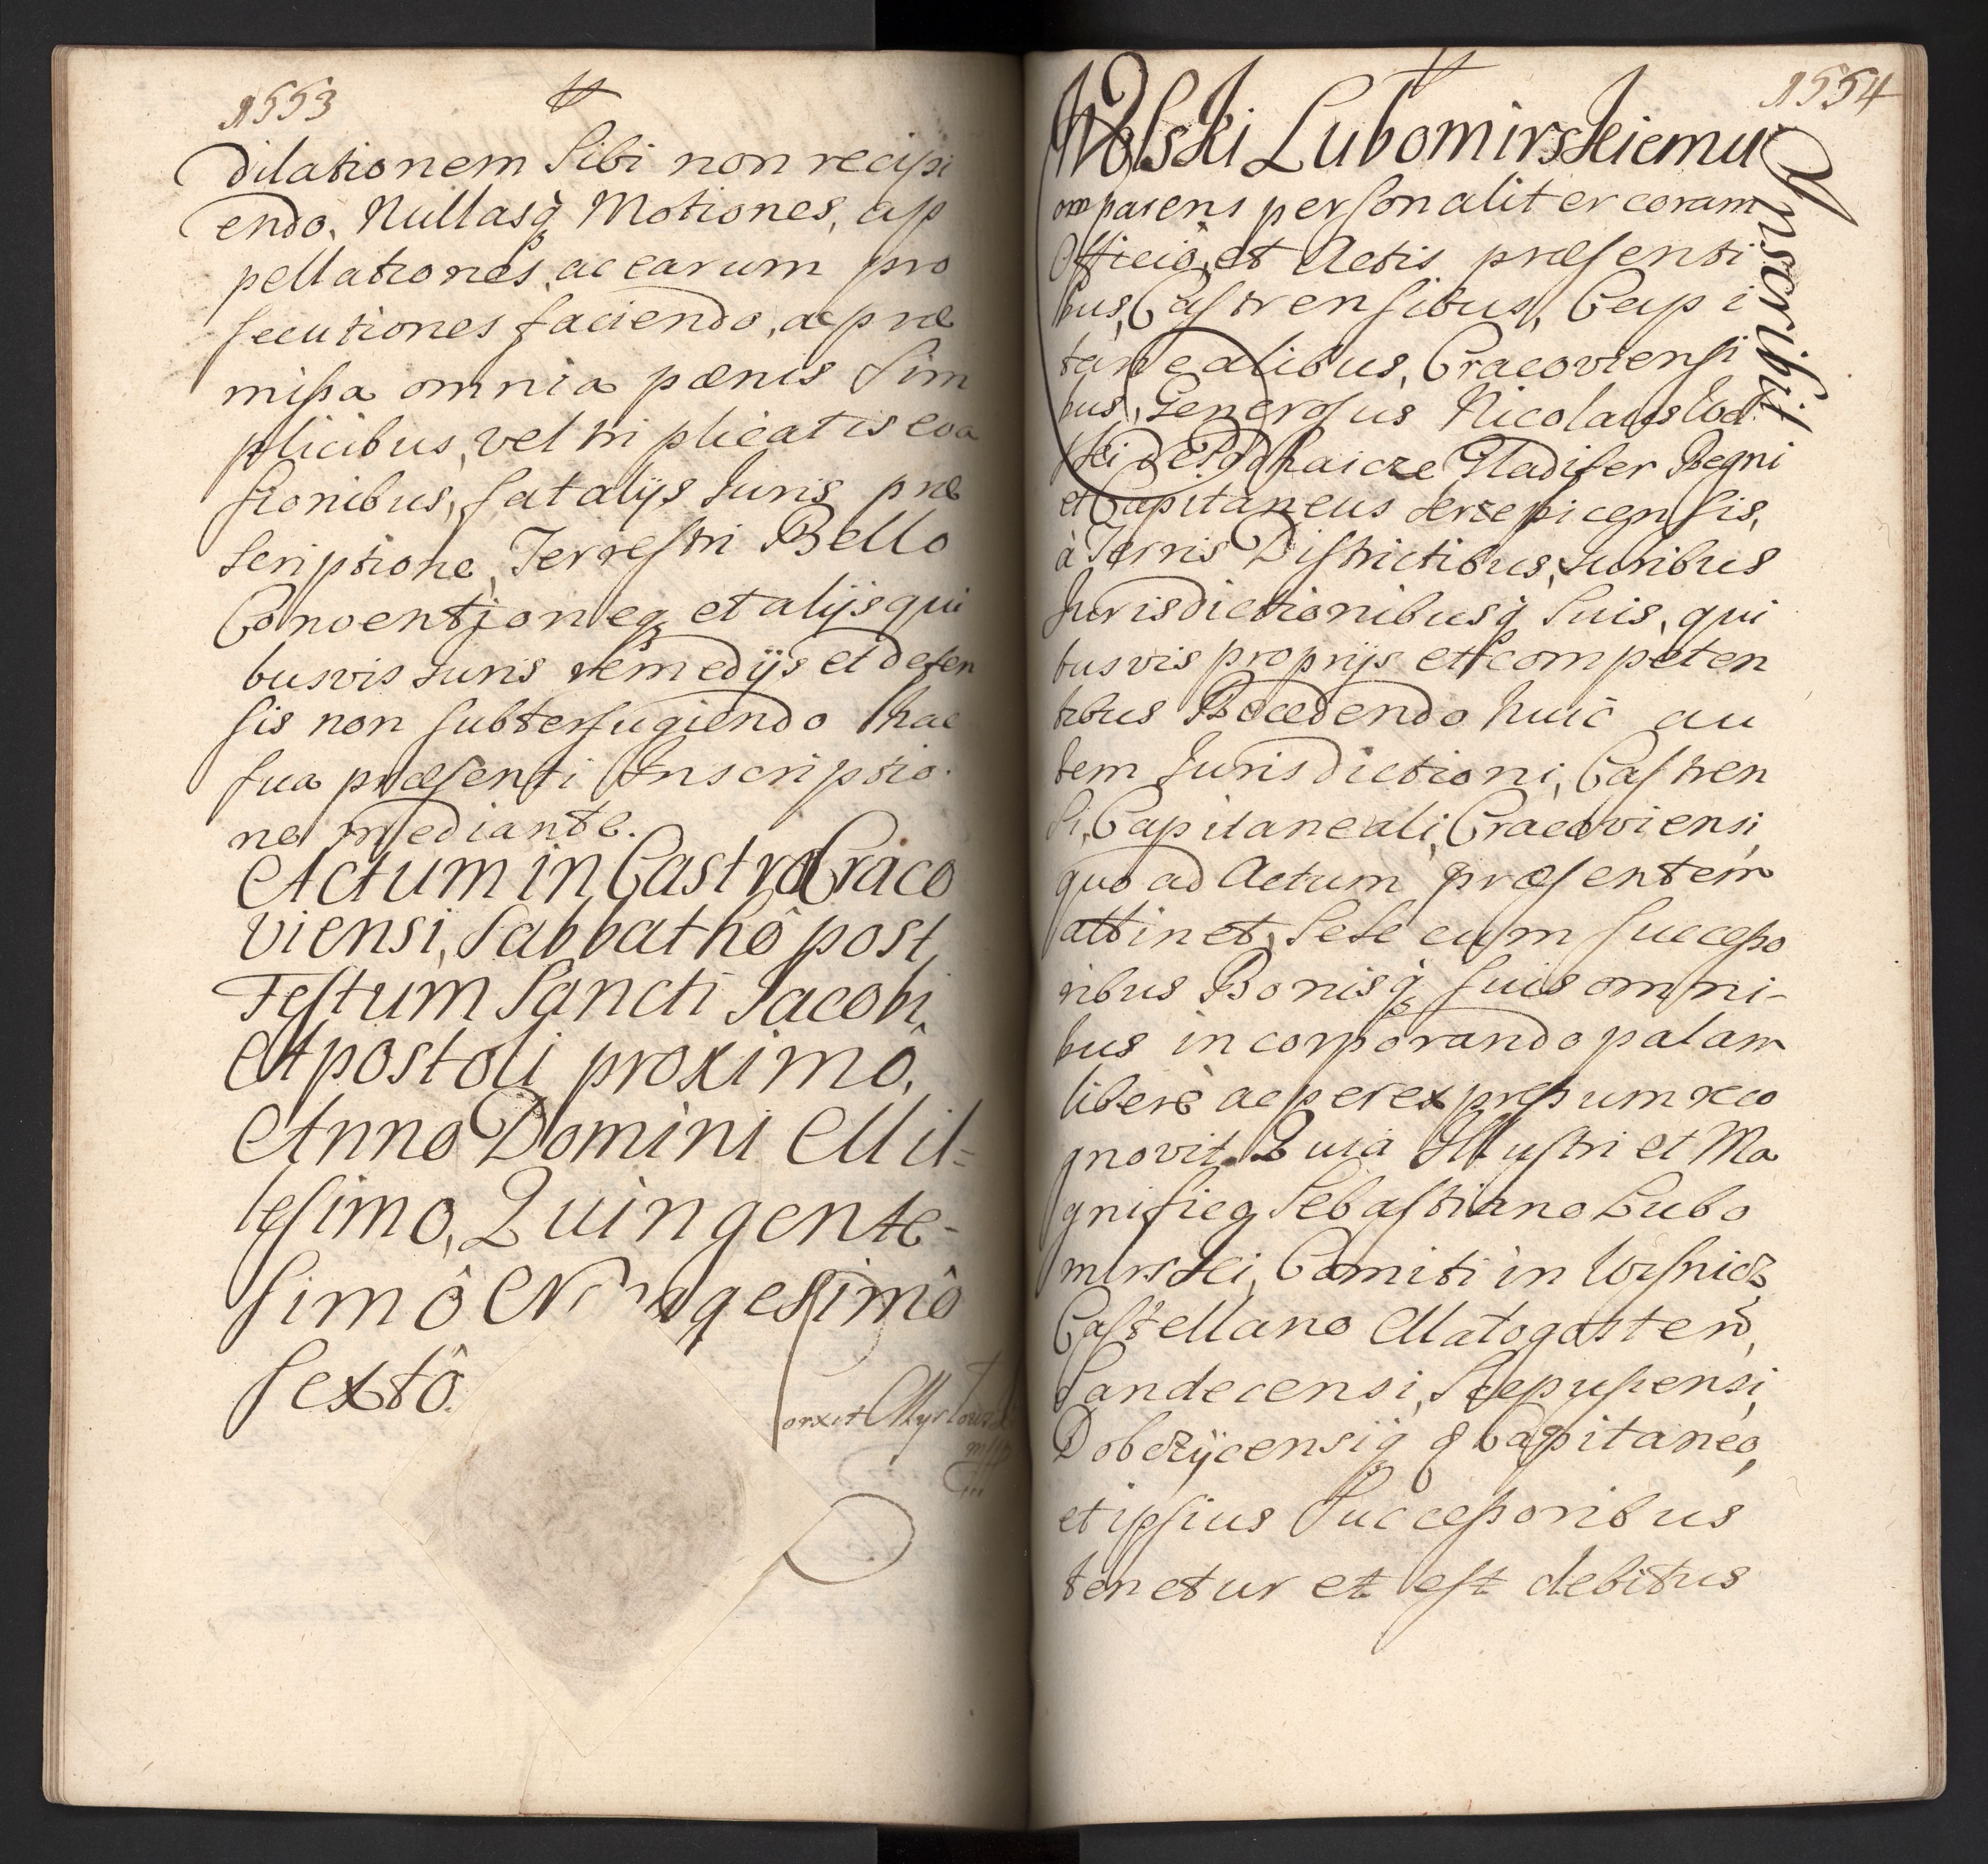 1553
dilationem Sibi non recipi
endo, Nullasq̀ Motiones, ap
pellationes, ac earum pro
secutiones faciendo, ac præ
missa omnia pœnis Sim
plicibus, vel tri plicatis eva
sionibus, fatalijs Juris præ
scriptione, Terrestri Bello
Conventioneq et alijs qui
busvis Juris remedijs et defen
sis non subterfugiendo hac
sua præsenti Inscriptio
ne mediante.
Actum in Castro Craco
viensi, Sabbathô post
Festum Sancti Jacobi,
Apostoli proximô,
Anno Domini Mil=
lesimo, Quingente-
simô gesimô
Sextô.
1554
Wolski Lubomirskiemu
Inscribit
omparens personaliter coram
Officio, et Actis præsenti
bus, Castrensibus, Capi
tanealibus, Cracoviensi
bus, Generosus Nicolaus Wol
ski de Podhaicze Gladifer Regni
et Capitaneus Krzepicensis,
à Terris Districtibus, Juribus
Jurisdictionibusq̀ Suis, qui
busvis proprijs et competen
tibus Recedendo huic au
tem Jurisdictioni, Castren
si, Capitaneali, Cracoviensi,
quo ad Actum præsentem
attinet, Sese cum successo
ribus Bonisq̀ suis omni-
bus incorporando palam
liberè ac per expressum reco
gnovit. Quia Illustri et Ma
gnifico Sebastiano Lubo
mirski, Comiti in Wisnicz
Castellano Malogosten,
Sandecensi, Scepusiensi,
Dobczÿcensiq̀ Capitaneo,
et ipsius Successoribus
tenetur et est debitus